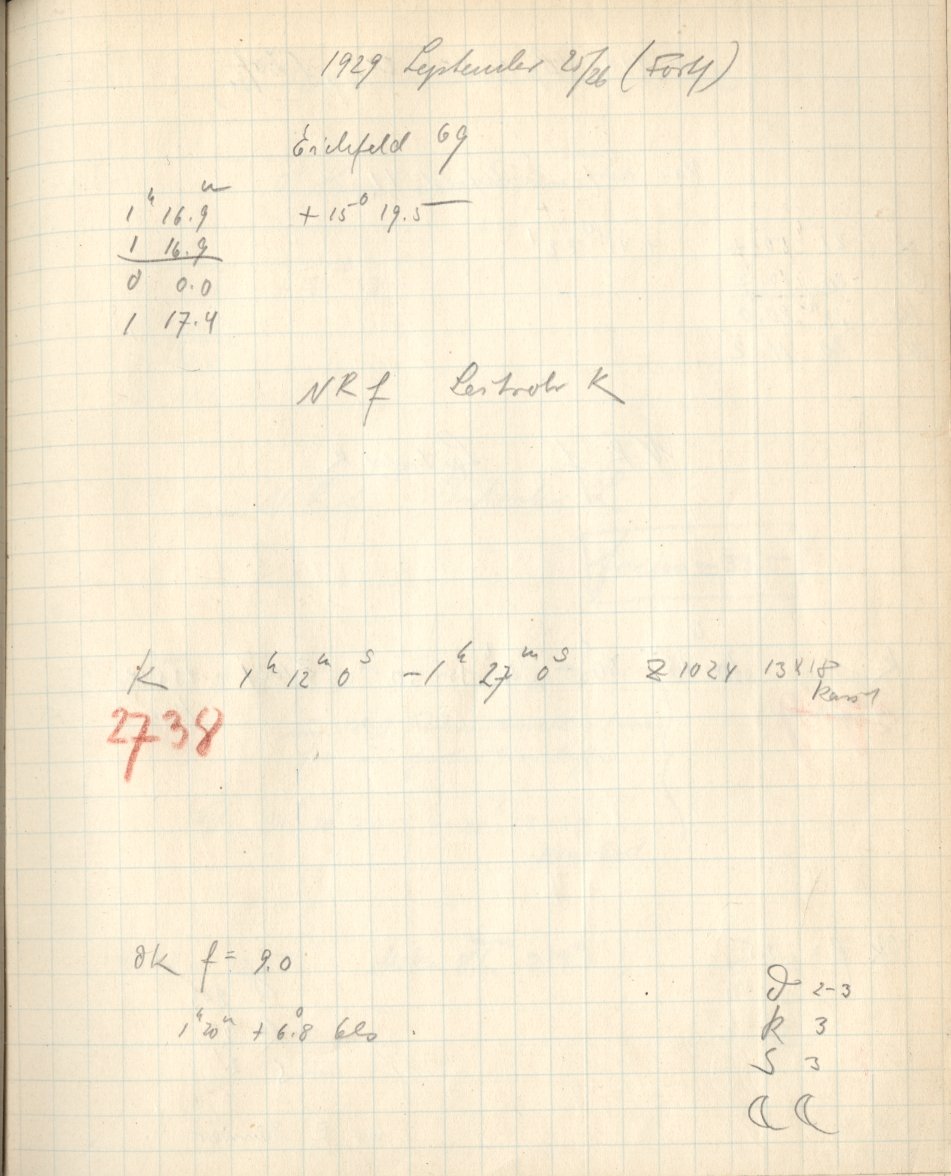 1929 September 25/26 (Forts)
Eichfeld 69
1ʰ 16.9ᵐ + 15° 19.5
1 16.9
0 0.0
1 17.4
NRf Leitrohr K
K 1ʰ 12ᵐ 0ˢ – 1ʰ 27ᵐ 0ˢ Z 1024 13x18
2738
δK f = 9.0
1ʰ 20ᵐ + 6.°8
2-3
R 3
S 3